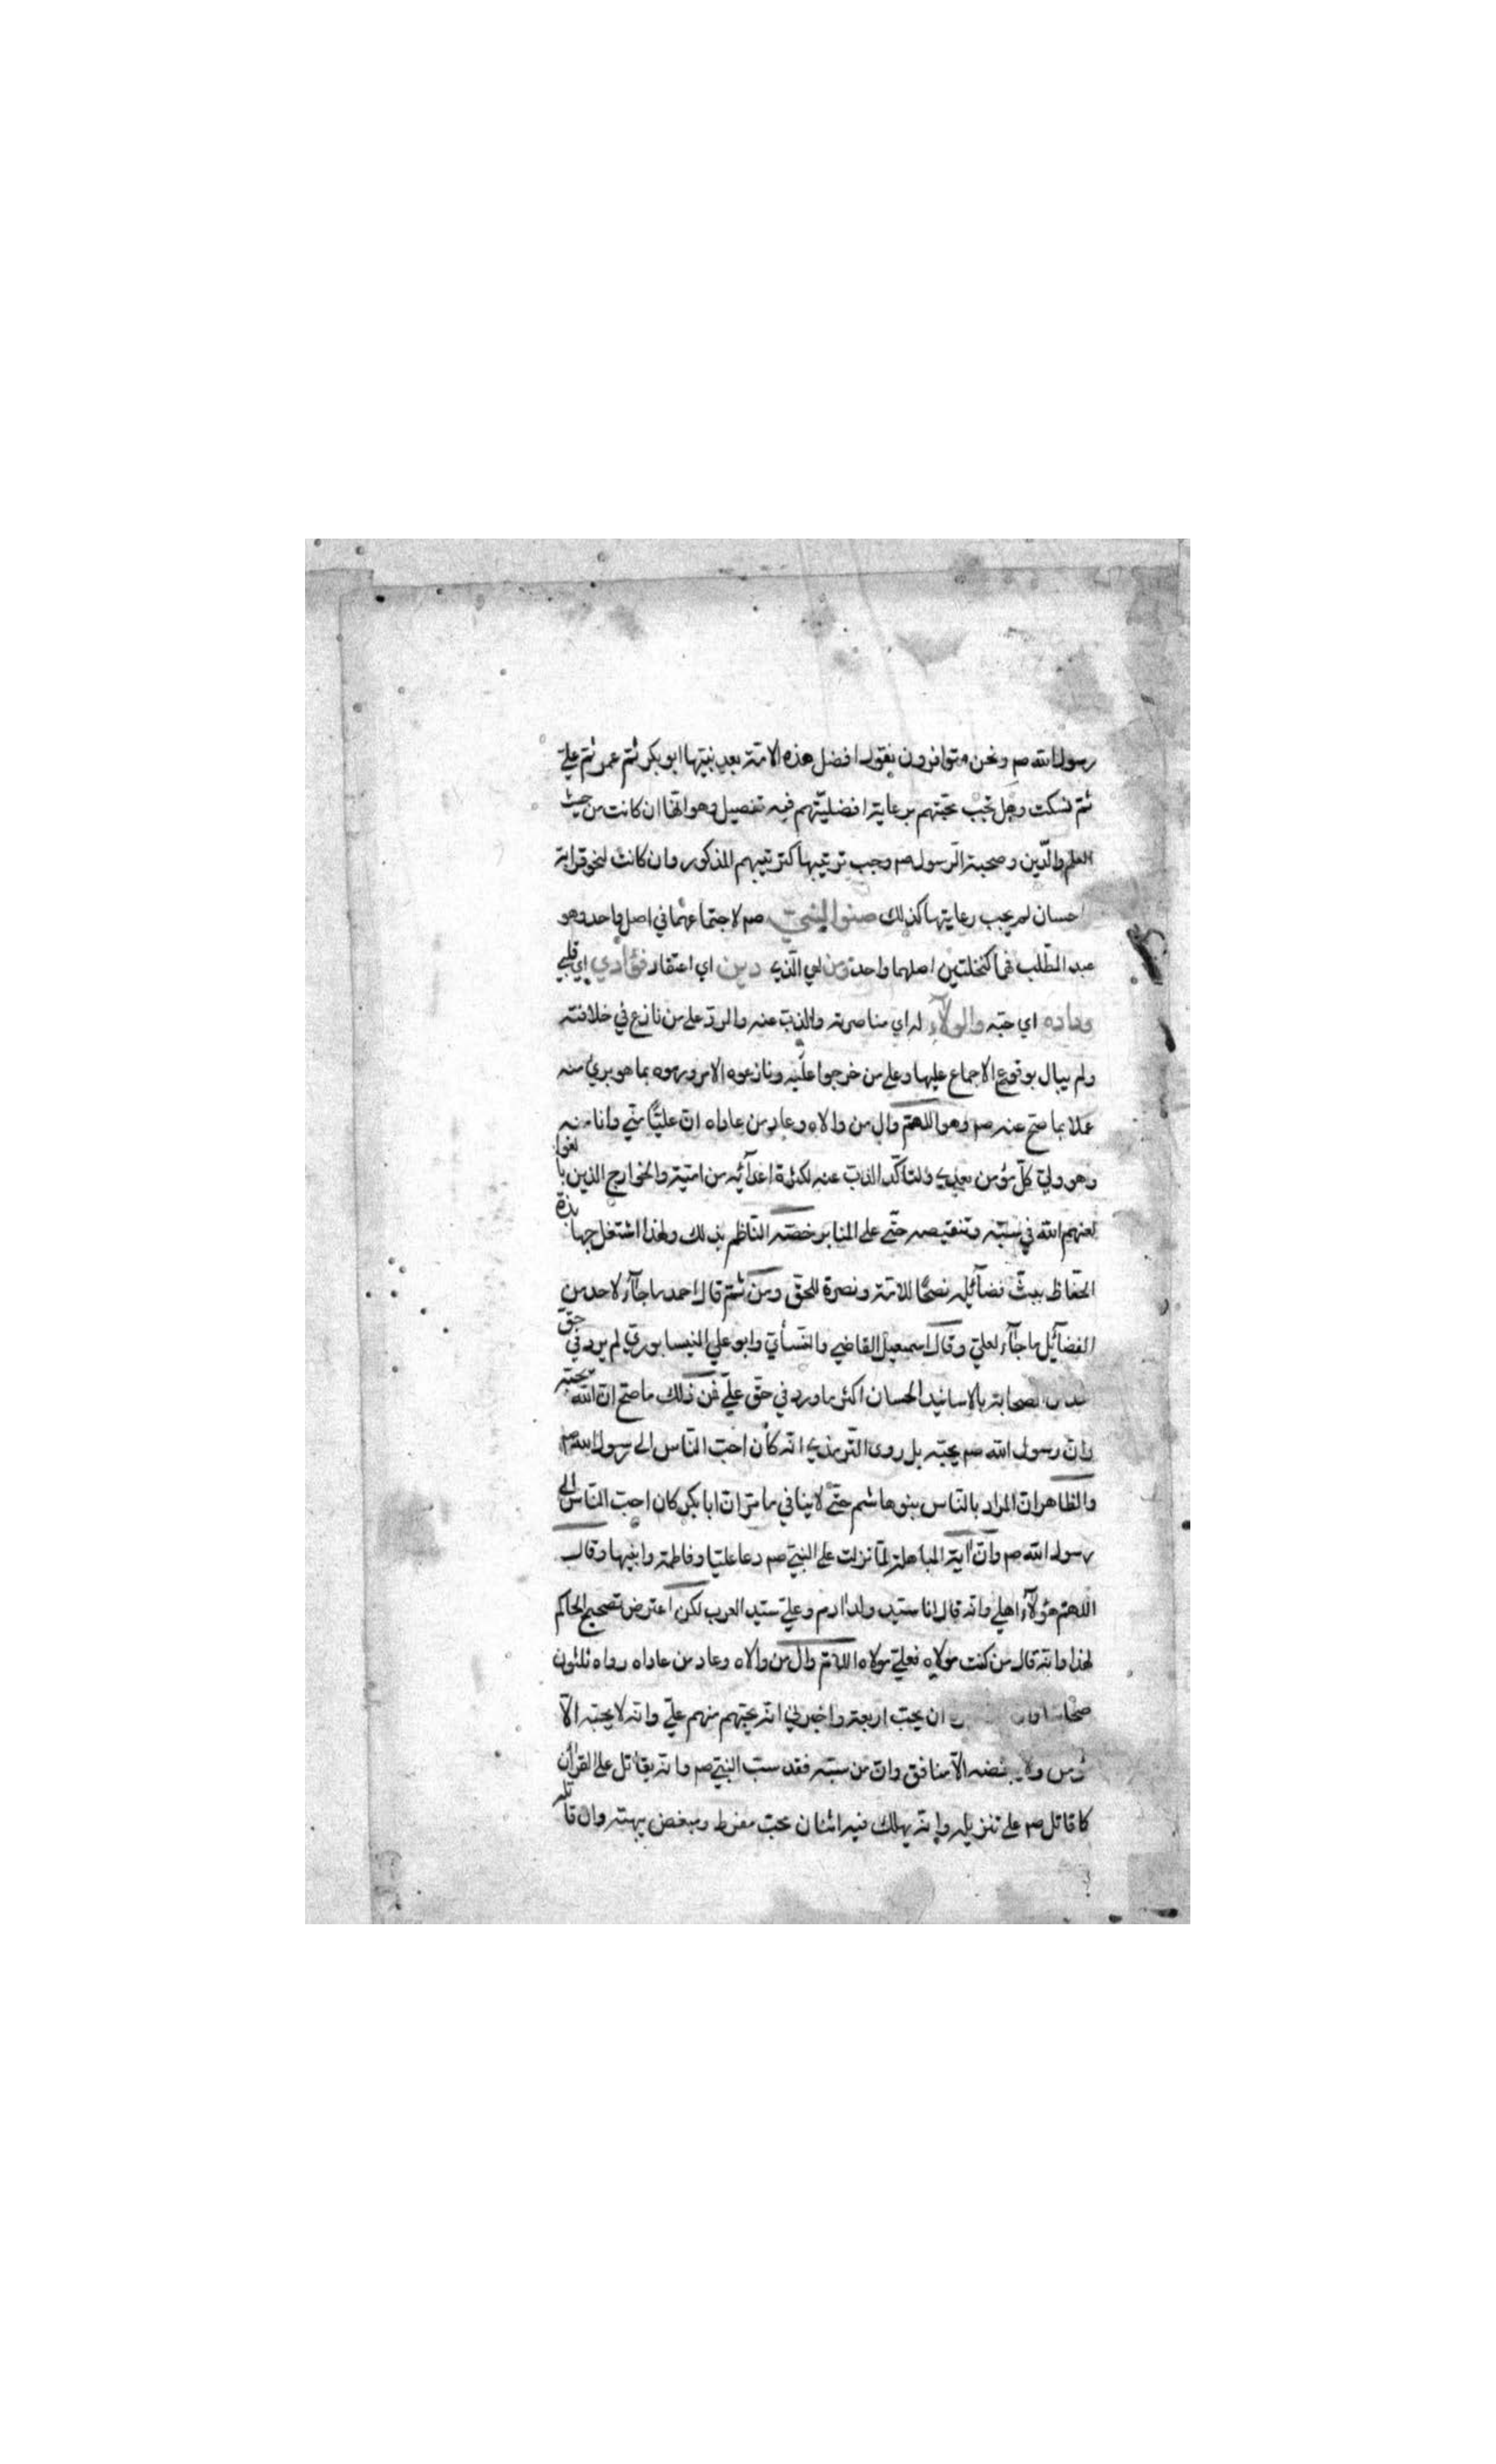 رسول الله صم ونحن متوافرون نقول افضل هذه الامة بعد نبيها ابو بكر ثم عمر ثم علي
ثم نسكت وهل تجب محبتهم برعاية افضليتهم فيه تفصيل وهو انها ان كانت من حيث
العلم والدين وصحبة الرسول صم وجب ترتيبها كترتيبهم المذكور وان كانت لنحو قرابة
احسان لم يجب رعايتها كذلك صنو النبي صم لاجتماعهما في اصل واحد وهو
عبد المطلب فهما كنخلتين اصلهما واحد ومن اي الذي دين اي اعتقاد فؤادي اي قلبي
وداده اي حبه والولاء له اي مناصرته والذب عنه والرد على من نازع في خلافته
ولم يبال بوقوع الاجماع عليها وعلى من خرجوا عليه ونازعوه الامر ورموه بما هو بريئ منه
عملا بما صح عنه صم وهو اللهم وال من والاه وعاد من عاداه ان عليًّا مني وانا منه
وهو ولي كل مؤمن بعدي ولتاكد الذب عنه لكثرة اعدآئه من امية والخوارج الذين بالغوا
لعنهم الله في سبه وتنقيصه حتى على المنابر خصه الناظم بذلك ولهذا اشتغل جهابذة
الحفاظ ببث فضآئله نصحًا للامة ونصرة للحق ومن ثم قال احمد ما جآء لاحد من
الفضآئل ما جآء لعلي وقال اسمعيل القاضي والنسأي وابو علي النيسابوري لم يرد في حق
الصحابة بالاسانيد الحسان اكثر ما ورد في حق علي فمن ذلك ما صح ان الله يحبه
وان رسول الله صم يحبه بل روى الترمذي انه كان احب الناس الى رسول الله صم
والظاهر ان المراد بالناس بنو هاشم حتى لا ينافي ما مر ان ابا بكر كان احب الناس الى
رسول الله صم وان آية المباهلة لما نزلت على النبي صم دعا عليا وفاطمة وابنيها وقال
اللهم هؤلآء اهلي وانه قال انا سيد ولد ادم وعلي سيد العرب لكن اعترض تصحيح الحاكم
لهذا وانه قال من كنت مولاه فعلي مولاه اللهم وال من والاه وعاد من عاداه رواه ثلثون
صحابيا ان يحب اربعة واخبرني انه يحبهم منهم علي وانه لا يحبه الا
مؤمن ولا يبغضه الا منافق وان من سبه فقد سب النبي صم وانه يقاتل على القرآن
كما قاتل صم على تنزيله وانه يهلك فيه اثنان محب مفرط ومبغض يبهته وان قاتله